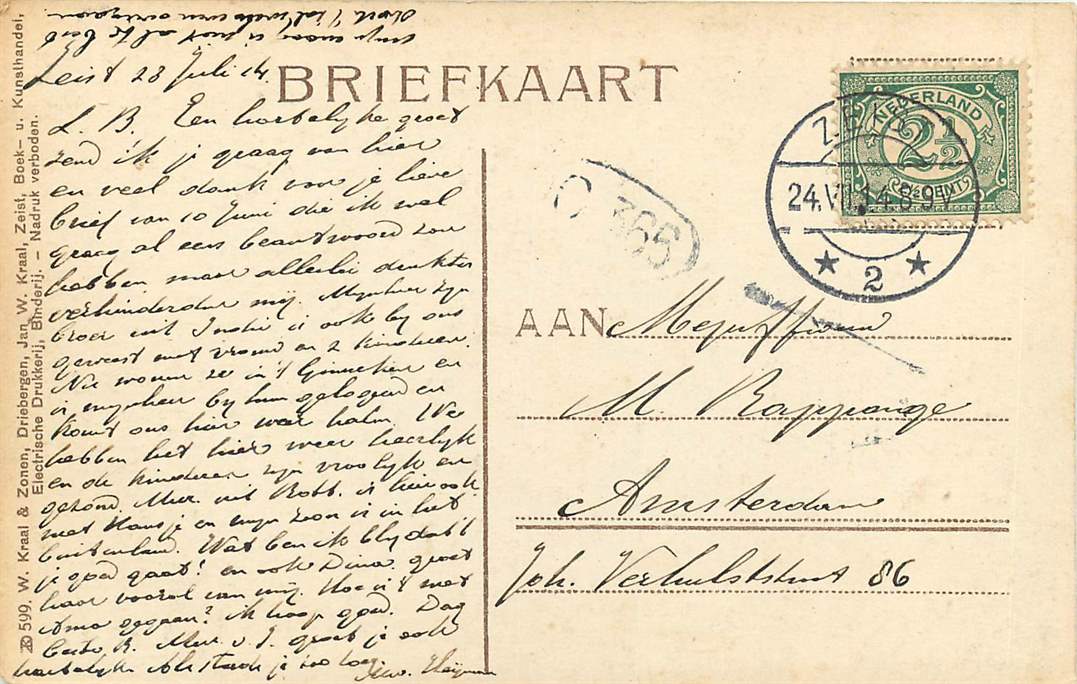 mijn
Zeist 23 Juli 14.
BRIEFKAART
L. B. Een hartelijke groet
zend ik je graag van hier
en veel dank voor je lieve
brief van 10 Juni die ik wel
graag al eens beantwoord zou
hebben, maar allerlei drukten
verhinderden mij. Mijnheer zijn
broer uit Indië is ook bij ons
geweest met vrouw en 2 kinderen.
Nu wonen ze in 't Ginneken en
is mijnheer bij hun gelogeerd en
komt ons hier weer halen. We
hebben het hier weer heerlijk
en de kinderen zijn vroolijk en
gezond. Mevr. uit Rott. is hier ook
met Hansje en mijn zoon is in het
buitenland. Wat ben ik blij dat 't
je goed gaat! en ook Dina. groet
haar vooral van mij. Hoe is 't met
Anna gegaan? ik hoop goed. Dag
beste B. Mevr. v. J. groet je ook
hartelijk.
NEDERLAND
2½
(2½ CENT)
ZEIST
24.VII.14.8-9V
★ 2 ★
365
AAN Mejuffrouw
M. Rappange
Amsterdam
Joh. Verhulststraat 86
599, W. Kraal & Zonen, Driebergen, Jan W. Kraal, Zeist, Boek- u. Kunsthandel,
Electrische Drukkerij, Binderij. – Nadruk verboden.